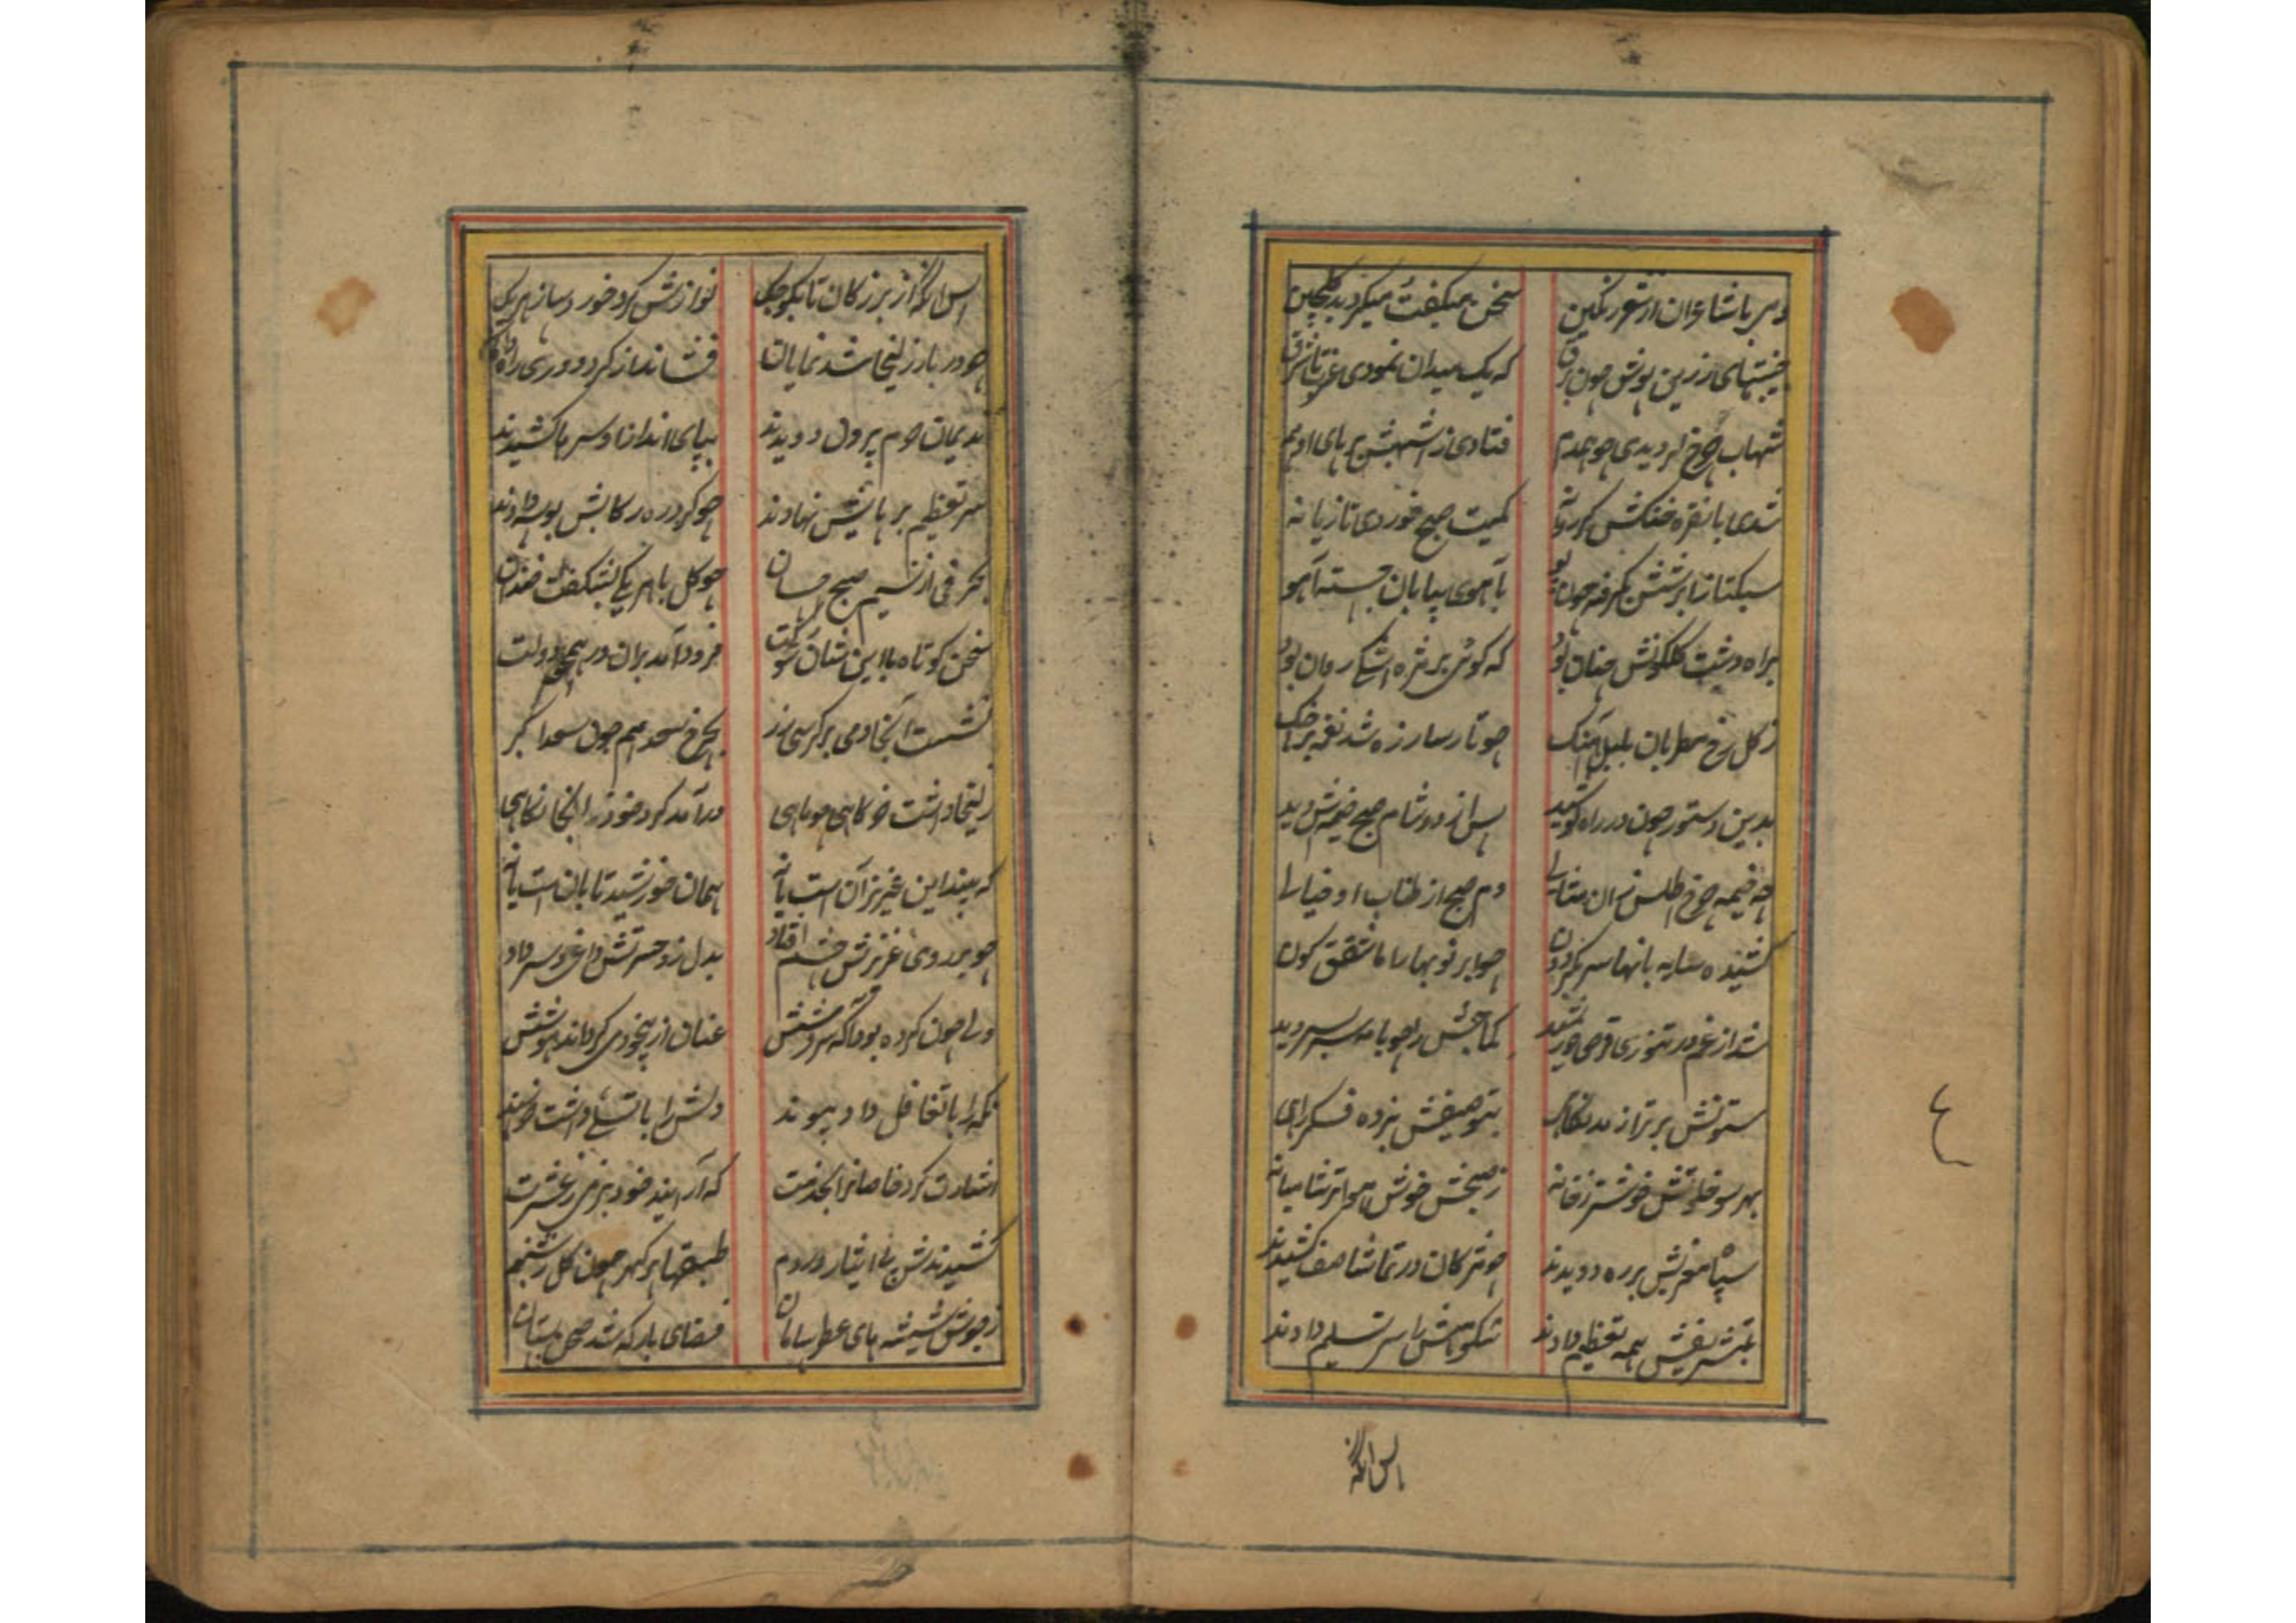 دمی با شاعران از شعر رنگین سخن میکفت میکردید کلچین
جنیبتهای زرین پوش چون برق که یک میدان نمودی غرب تا شرق
شهاب چرخ کردیدی چو همدم فتادی زاشهبش بر پای ادهم
شدی با نقره خنکش کر روانه کمیت صبح خوردی تازیانه
سبکتازان برشش چون بآهوی بیابان جسته آهو
براه دشت کلکونش چنان بود که کوئی بر مژه اشک روان بود
ز کل رخ مطربان بلبل آهنک چو تار ساز زه شد نغمه بر چنک
بدین دستور چون در راه کوشید پس از ده شام صبح خیمه اش دید
چه خیمه چرخ اطلس زان مثالی دم صبح از طناب او خیالی
کشیده سایه بانها سر بکردون چو ابر نوبهار اما شفق کون
شد از غم در تنوری قرص خورشید کماجش را چو با مه سربسر دید
ستونش برتر از مد نکاهی بتوصیفش نزده فکر رای
بهر سو خلوتش خوشتر ز خانه ز صبحش خوش شامیانه
سپاه مغربش بر ره دویدند چو مژکان در تماشا صف کشیدند
بتشریفش همه تعظیم دادند شکوهش را سر تسلیم دادند
پس آنکه
٤
پس آنکه از بزرکان تا بکوچک نوازش کرد خور هر یک
چو دربار زلیخا شد نمایان فشاند از کرد دوری راه
ندیمان حرم بیرون دویدند بپای انداز او سرها کشیدند
سر تعظیم بر پایش نهادند چو کرد ره رکابش بوسه دادند
بحرفی از نسیم صبح چو کل با هر یکی بشکفت خندان
سخن کوتاه با این شان شوکت فرود آمد بران در دولت
نشست آنجا دمی بر کرسی زر بچرخ نهم چون سعد اکبر
زلیخا داشت خرکاهی چو ماهی درآمد کرد خود را آنجا نکاهی
که بیند این عزیز آن است یا نه همان خورشید تابان است یا نه
چو بر روی عزیزش چشم افتاد بدل زد حسرتش داغی و سر داد
ولی چون کرده بود آکه سروشش عنان از بیخودی کرداند هوشش
نکه را با تغافل داد پیوند دلش را با تسلی داشت خرسند
اشارت کرد خاصان را بخدمت که آرایند خود بزمی ز عشرت
کشیدندش پی ایثار در دم طبقها پر کهر چون کل ز شبنم
ز جوش شیشه های عطر سامان فضای بارکه شد صحن بستان